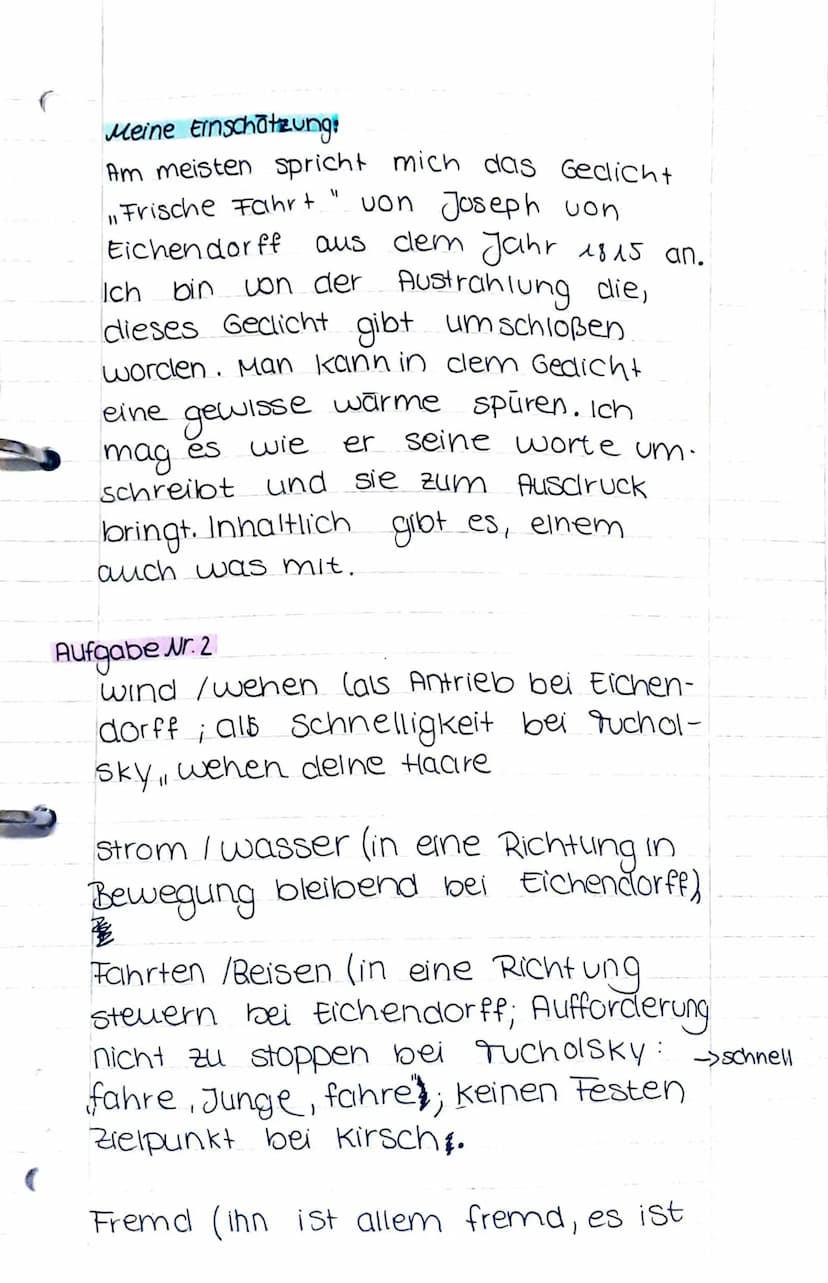 Meine Einschätzung:
Am meisten spricht mich das Gedicht
„Frische Fahrt" von Joseph von
Eichendorff aus dem Jahr 1815 an.
Ich bin von der Austrahlung die,
dieses Gedicht gibt umschloßen
worden. Man kann in dem Gedicht
eine gewisse wärme spüren. Ich
mag es wie er seine worte um-
schreibt und sie zum Ausdruck
bringt. Inhaltlich gibt es, einem
auch was mit.
Aufgabe Nr. 2
wind / wehen (als Antrieb bei Eichen-
dorff ; als Schnelligkeit bei Tuchol-
sky „ wehen deine Haare
Strom / wasser (in eine Richtung in
Bewegung bleibend bei Eichendorff)
Fahrten / Reisen (in eine Richtung
steuern bei Eichendorff; Aufforderung
nicht zu stoppen bei Tucholsky: →schnell
„fahre, Junge, fahre"; keinen Festen
Zielpunkt bei Kirsch.
Fremd (ihn ist allem fremd, es ist